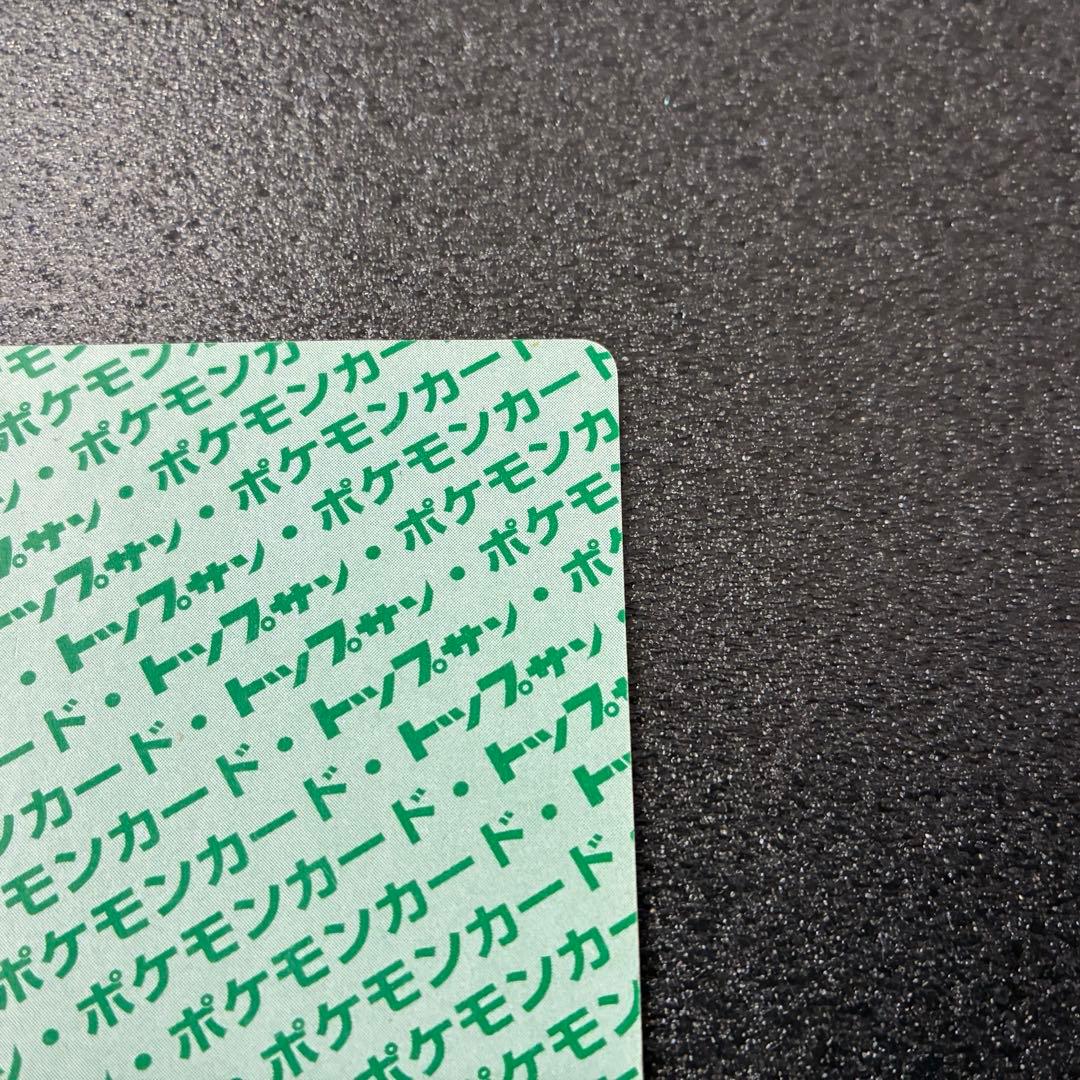 ケモン
ポケモン
・ポケモンカ
ップサン・ポケモンカー
トップサン・ポケモンカード
・トップサン・ポケモンカード
ード・トップサン・ポケモンカ
ンカード・トップサン・ポケモ
モンカード・トップサン・ポ
ポケモンカード・トップサン・
・ポケモンカード・トップサ
・ポケモンカード・トッ
ポケモンカード
ポケモンカー
ポケモン